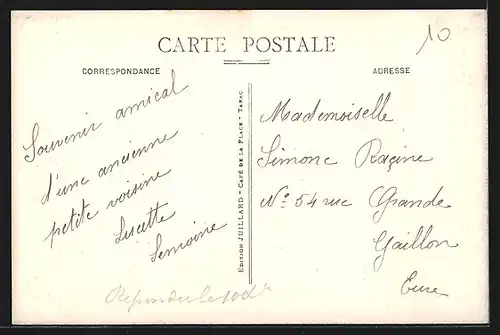 10
CARTE POSTALE
CORRESPONDANCE
ADRESSE
Souvenir amical
d'une ancienne
petite voisine
Lucette
Lemoine
EDITION JUILLARD - CAFÉ DE LA PLACE - TABAC
Mademoiselle
Simone Racine
N° 54 rue Grande
Gaillon
Eure
Répondu le